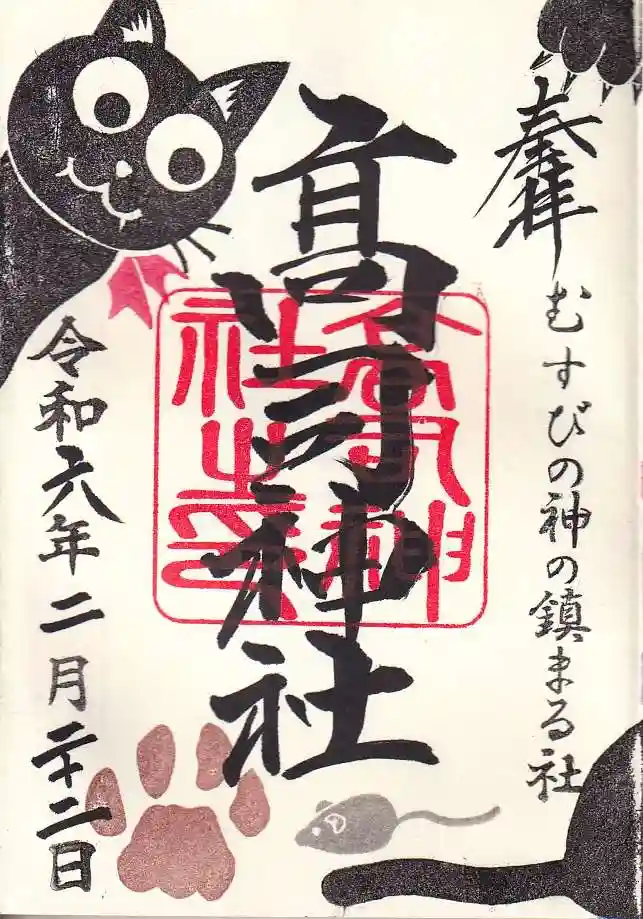 奉拝
むすびの神の鎮まる社
髙司神社
高司神社之印
令和六年二月二十二日